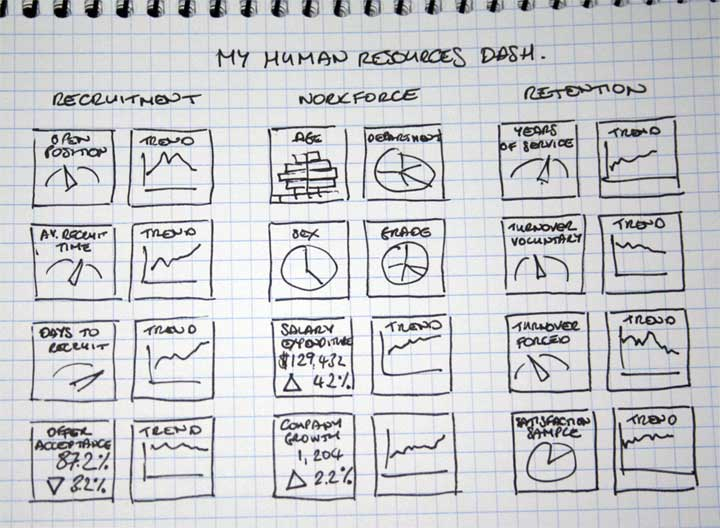 MY HUMAN RESOURCES DASH.
RECRUITMENT
OPEN
POSITION
TREND
AV. RECRUIT
TIME
TREND
DAYS TO
RECRUIT
TREND
OFFER
ACCEPTANCE
87.2%
▽ 3.2%
TREND
WORKFORCE
AGE
DEPARTMENT
SEX
GRADE
SALARY
EXPENDITURE
$129,432
△ 4.2%
TREND
COMPANY
GROWTH
1,204
△ 2.2%
RETENTION
YEARS
OF SERVICE
TREND
TURNOVER
VOLUNTARY
TREND
TURNOVER
FORCED
TREND
SATISFACTION
SAMPLE
TREND